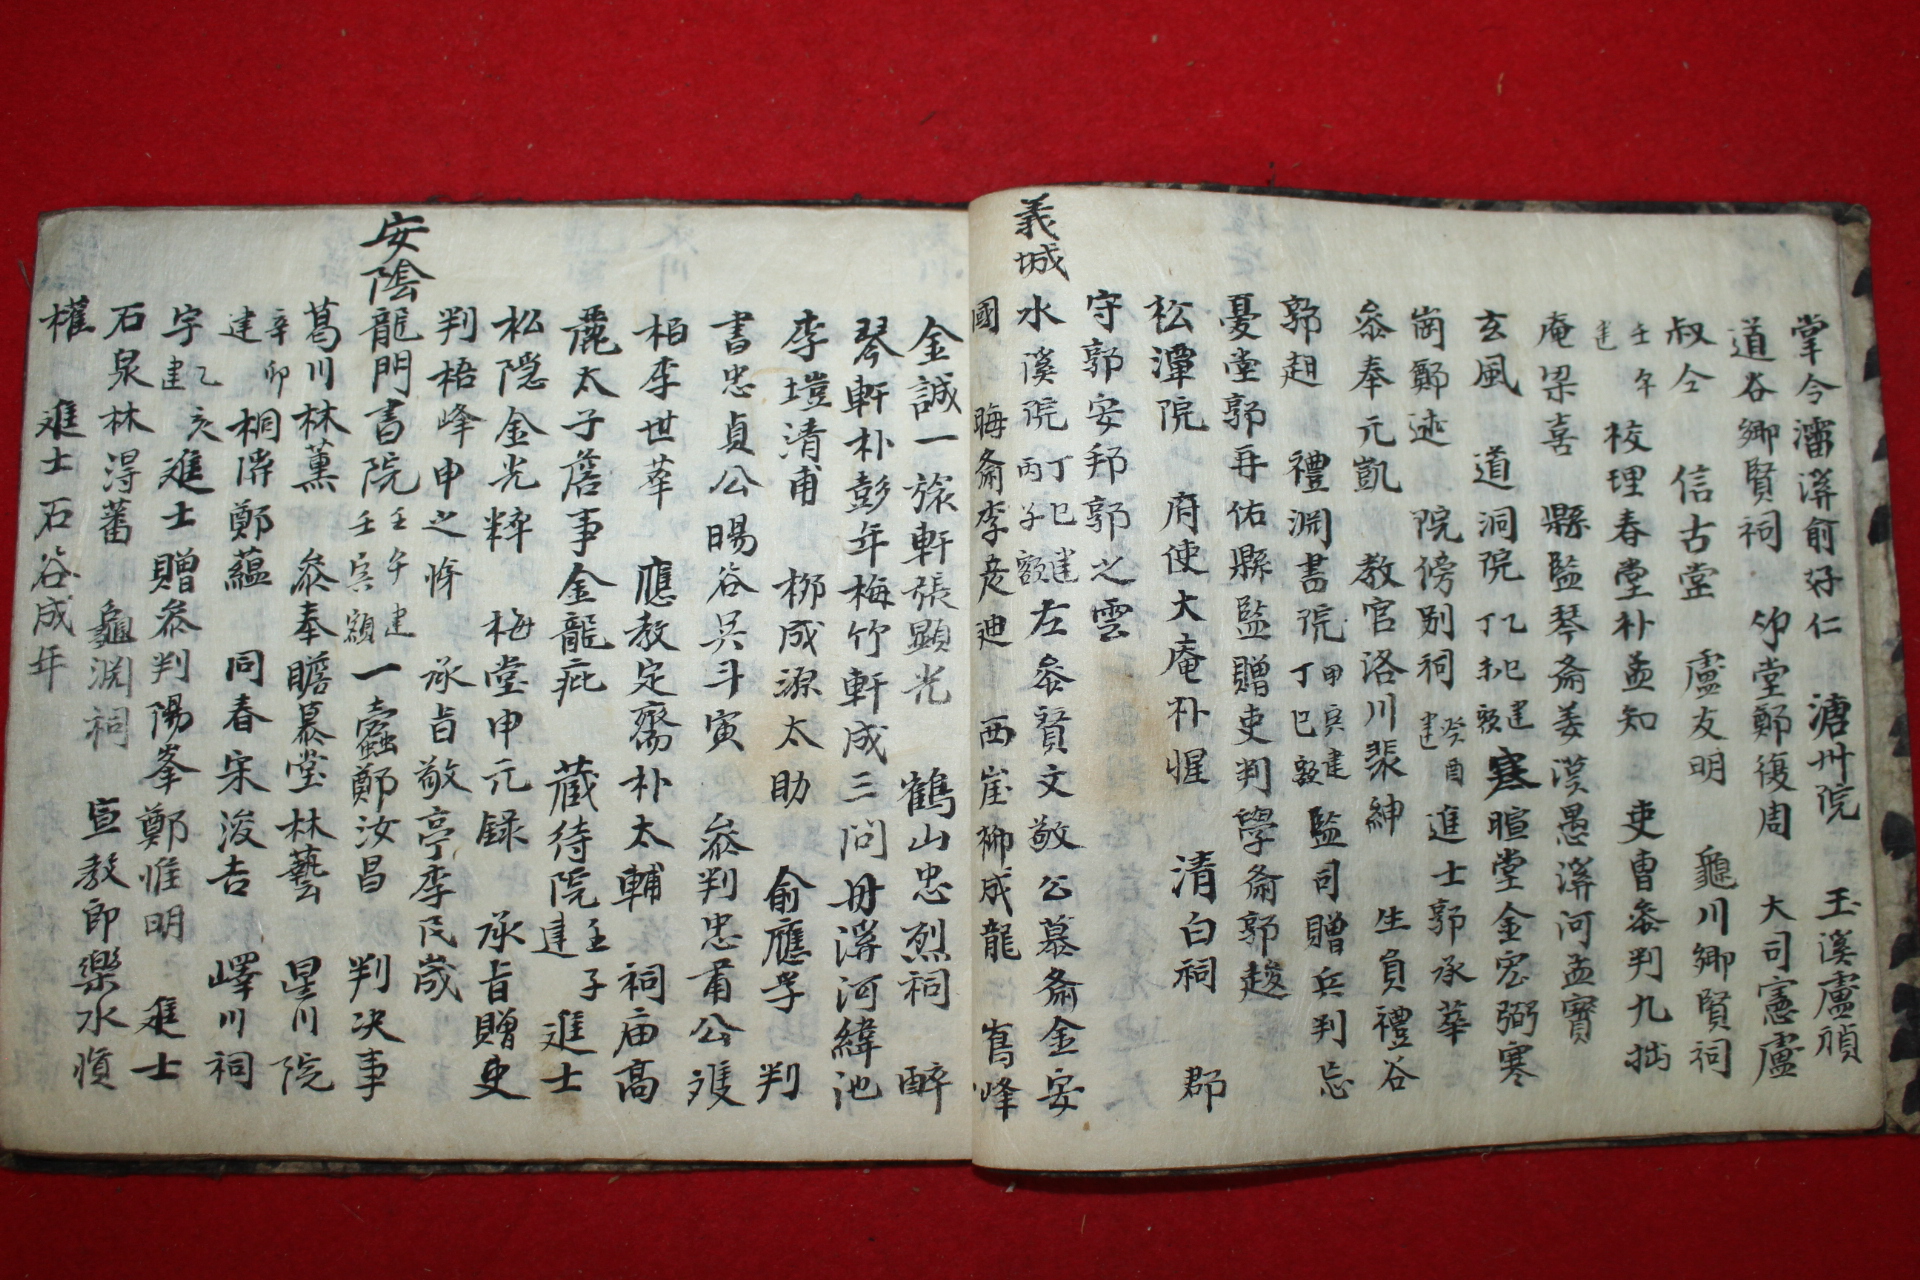 掌令灆溪俞好仁 溏州院 玉溪盧禛
道谷鄉賢祠 竹堂鄭復周 大司憲盧
叔仝 信古堂 盧友明 龜川鄉賢祠
壬午建 校理春堂朴孟知 吏曹參判九拙
庵梁喜 縣監琴齋姜漢愚溪河孟寶
玄風 道洞院乙巳建丁未額寒暄堂金宏弼寒
崗鄭逑 院傍別祠癸酉建進士郭承華
參奉元凱 教官洛川裴紳 生負禮谷
郭趄 禮淵書院甲寅建丁巳額監司贈兵判忘
憂堂郭再佑縣監贈吏判學齋郭䞭
松潭院 府使大庵朴惺 清白祠 郡
守郭安邦郭之雲
義城
水溪院丁巳建丙子額左參賢文敬公慕齋金安
國 晦齋李彦迪 西崖柳成龍 鶴峰
金誠一旅軒張顯光 鶴山忠烈祠 醉
琴軒朴彭年梅竹軒成三問丹溪河緯池
李塏清甫 柳成源太助 俞應孚 判
書忠貞公暘谷吳斗寅 參判忠肅公
柏李世華 應教定齋朴太輔 祠庙高
麗太子詹事金龍疵 藏待院壬子建進士
松隠金光粹 梅堂申元録 承旨贈吏
判梧峰申之悌 承旨敬亭李民宬
安陰
龍門書院壬午建壬寅額一蠹鄭汝昌 判决事
葛川林薫 參奉瞻慕堂林藝 星川院
辛卯建桐溪鄭蘊 同春宋浚吉 嶧川祠
字乙亥建進士贈參判陽峯鄭惟明 進士
石泉林㝵蕃 龜淵祠 宣教郎樂水慎
權 進士石谷成年